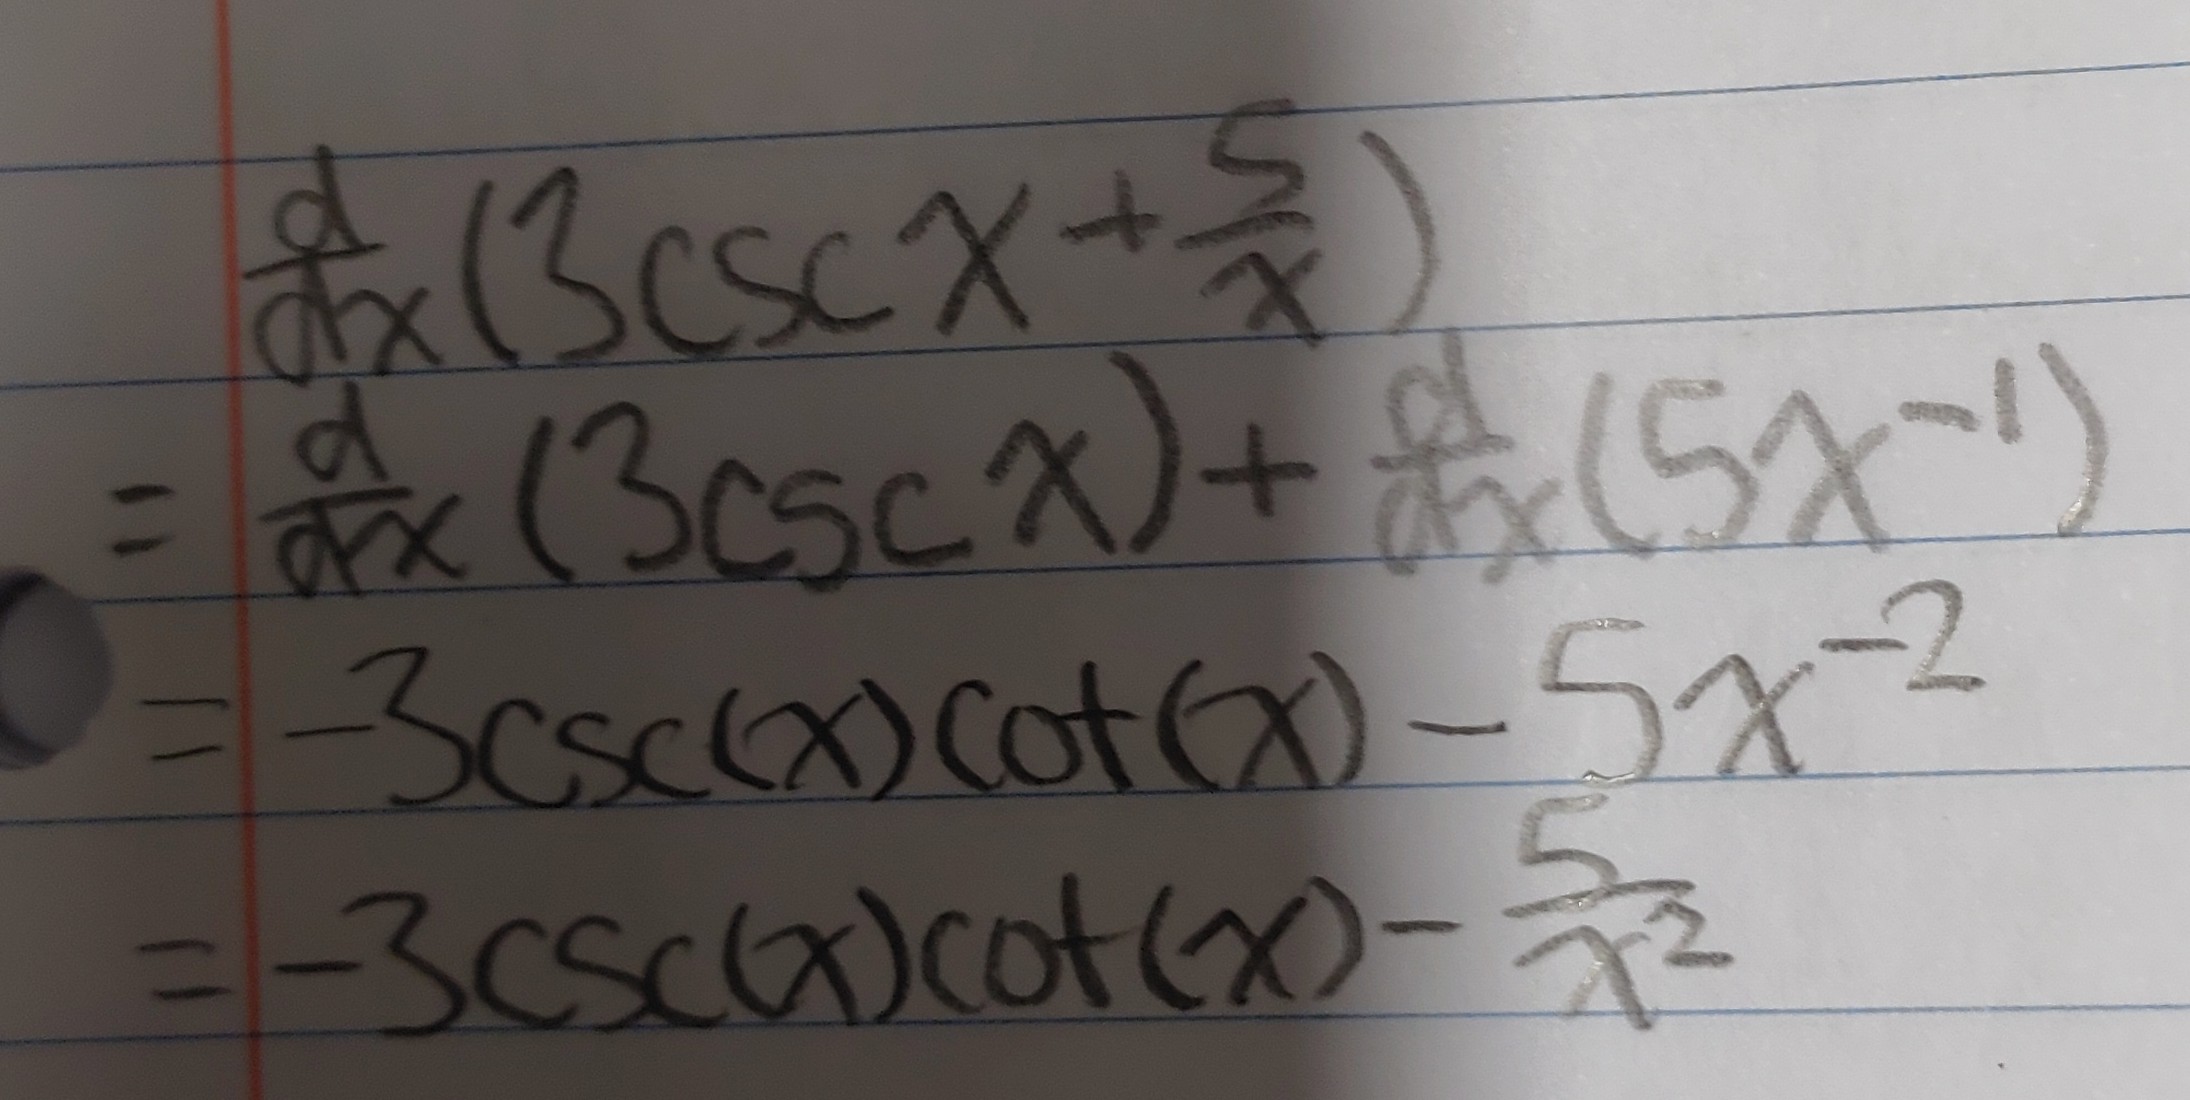 d/dx (3cscx + 5/x)
= d/dx (3cscx) + d/dx (5x⁻¹)
= -3csc(x)cot(x) - 5x⁻²
= -3csc(x)cot(x) - 5/x²